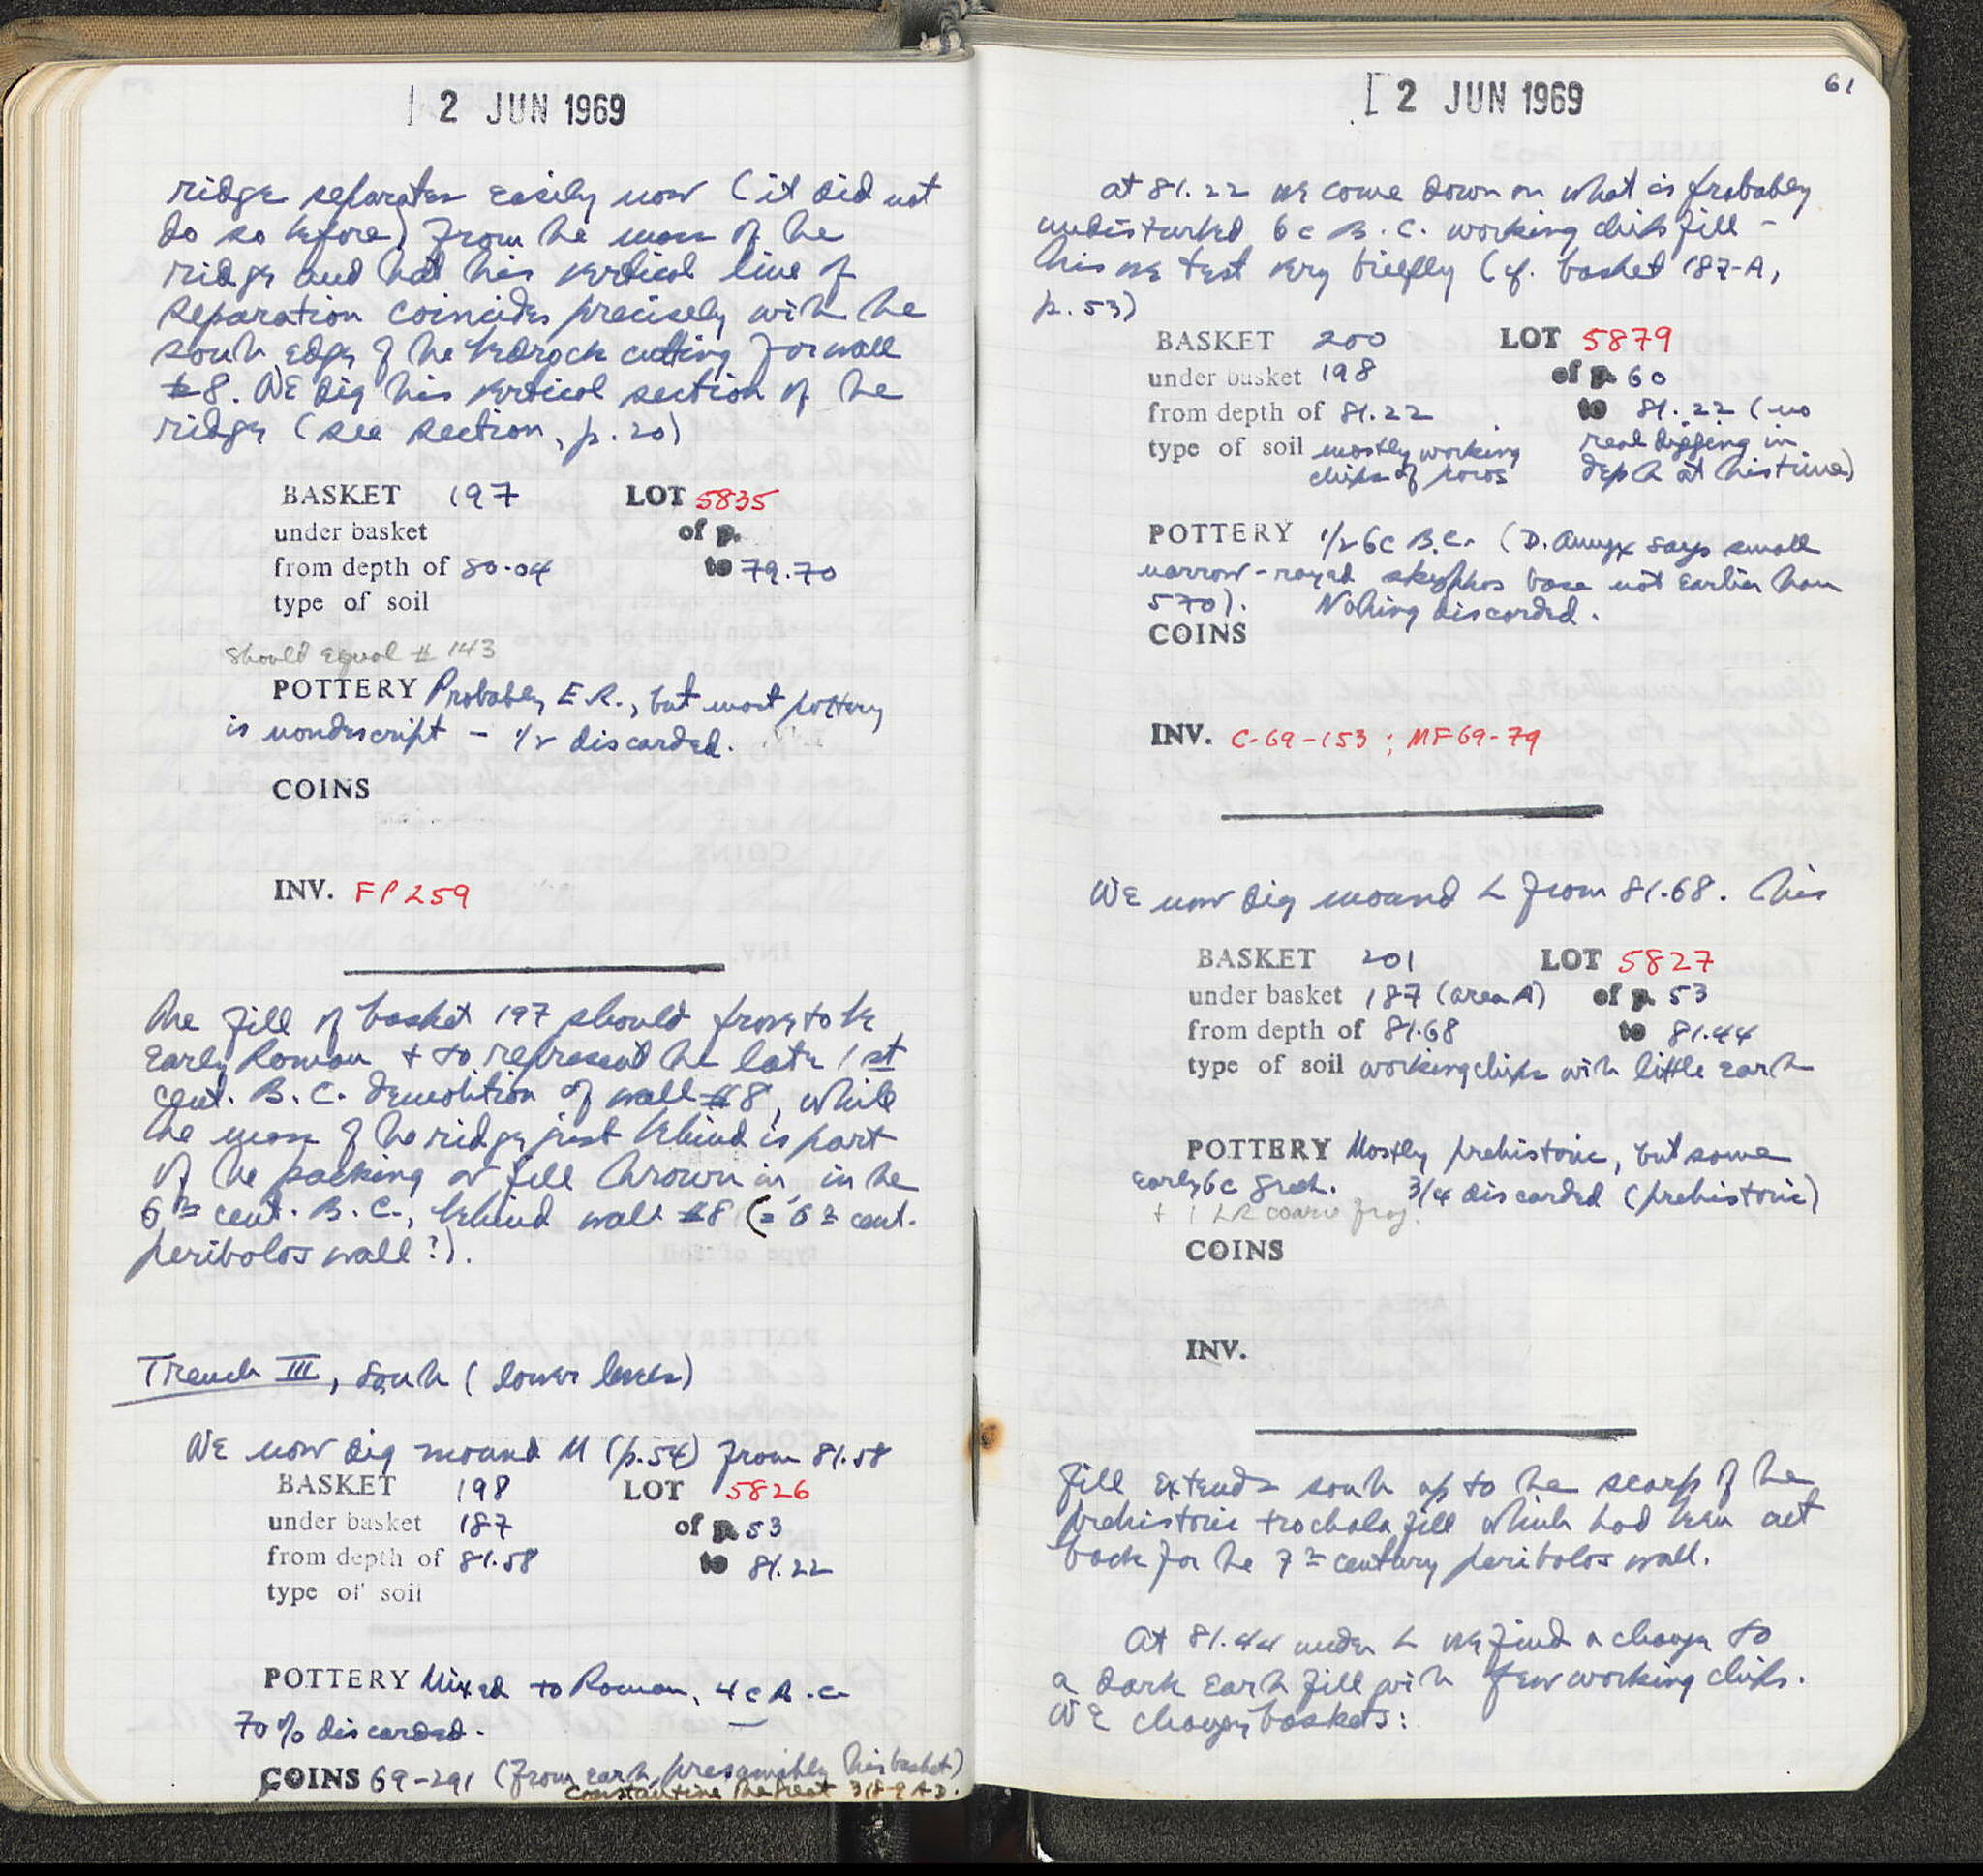 12 JUN 1969
ridge separates easily now (it did not
do so before) from the mass of the
ridge and that this vertical line of
separation coincides precisely with the
south edge of the bedrock cutting for wall
#8. We dig this vertical section of the
ridge (see section, p. 20)
BASKET 197 LOT 5835
under basket of p.
from depth of 80.04 to 79.70
type of soil
Should equal # 143
POTTERY Probably E.R., but most pottery
is nondescript - 1/2 discarded.
COINS
INV. FP259
The fill of basket 197 should prove to be
Early Roman + to represent the late 1st
cent. B.C. demolition of wall #8, while
the mass of the ridge just behind is part
of the packing or fill thrown in, in the
6th cent. B.C., behind wall #8 (= 6th cent.
peribolos wall?).
Trench III, South (lower levels)
We now dig mound M (p.54) from 81.58
BASKET 198 LOT 5826
under basket 187 of p. 53
from depth of 81.58 to 81.22
type of soil
POTTERY Mixed to Roman, 4c A.C.
70% discarded.
COINS 69-291 (from earth, presumably this basket)
Constantine the Great 318-9 A.D.
12 JUN 1969
61
at 81.22 we come down on what is probably
undisturbed 6c B.C. working chips fill -
this we test very briefly (cf. basket 187-A,
p. 53)
BASKET 200 LOT 5879
under basket 198 of p. 60
from depth of 81.22 to 81.22 (no
real digging in
depth at this time)
type of soil mostly working
chips of poros
POTTERY 1/2 6c B.C. (D. Amyx says small
narrow-rayed skyphos base not earlier than
570). Nothing discarded.
COINS
INV. C-69-153; MF69-79
We now dig mound L from 81.68. This
BASKET 201 LOT 5827
under basket 187 (area A) of p. 53
from depth of 81.68 to 81.44
type of soil working chips with little earth
POTTERY Mostly prehistoric, but some
early 6c Greek. 3/4 discarded (prehistoric)
+ 1 LR coarse frag.
COINS
INV.
fill extends south up to the scarp of the
prehistoric trochala fill which had been cut
back for the 7th century peribolos wall.
At 81.44 under L we find a change to
a dark earth fill with few working chips.
We change baskets: